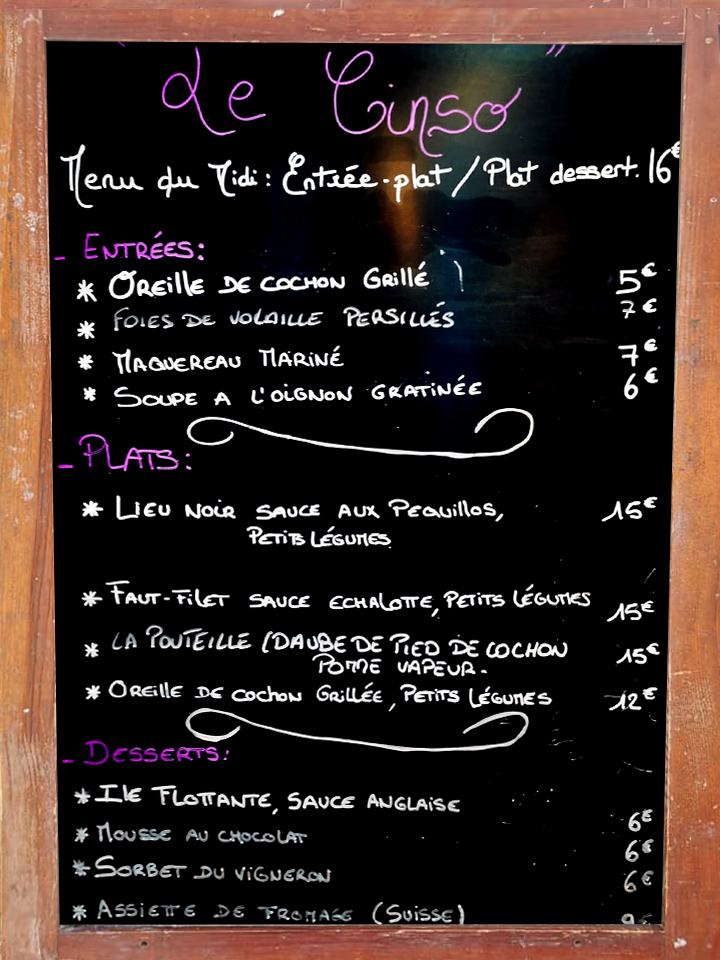 "Le Cinso"
Menu du Midi: Entrée-plat / Plat dessert. 16€
- ENTRÉES:
* OREILLE DE COCHON GRILLÉ
5€
* FOIES DE VOLAILLE PERSILLÉS
7€
* MAQUEREAU MARINÉ
7€
* SOUPE A L'OIGNON GRATINÉE
6€
- PLATS:
* LIEU NOIR SAUCE AUX PEQUILLOS,
15€
PETITS LÉGUMES
* FAUT-FILET SAUCE ECHALOTTE, PETITS LÉGUMES
15€
* LA POUTEILLE (DAUBE DE PIED DE COCHON
15€
POMME VAPEUR.
* OREILLE DE COCHON GRILLÉE, PETITS LÉGUMES
12€
- DESSERTS:
* ILE FLOTTANTE, SAUCE ANGLAISE
6€
* MOUSSE AU CHOCOLAT
6€
* SORBET DU VIGNERON
6€
* ASSIETTE DE FROMAGE (SUISSE)